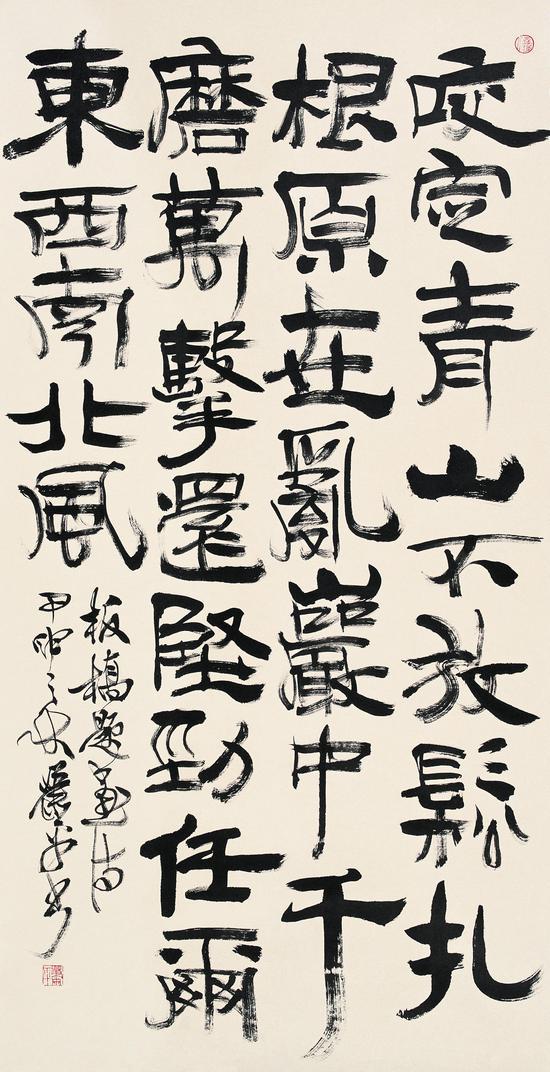 咬定青山不放鬆扎
根原在亂巖中千
磨萬擊還堅勁任爾
東西南北風
板橋題畫詩
甲申之秋書